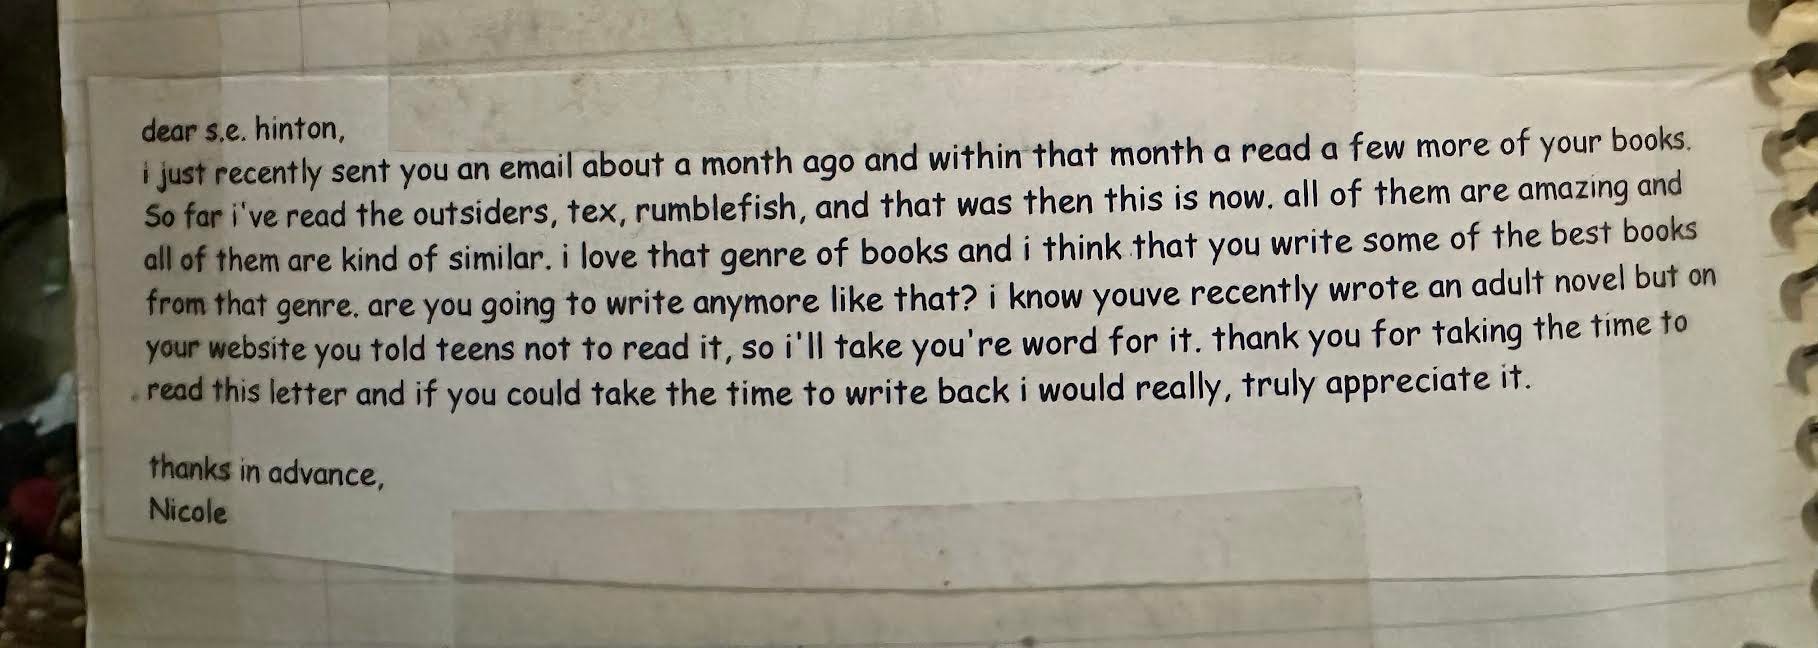 dear s.e. hinton,
i just recently sent you an email about a month ago and within that month a read a few more of your books.
So far i've read the outsiders, tex, rumblefish, and that was then this is now. all of them are amazing and
all of them are kind of similar. i love that genre of books and i think that you write some of the best books
from that genre. are you going to write anymore like that? i know youve recently wrote an adult novel but on
your website you told teens not to read it, so i'll take you're word for it. thank you for taking the time to
read this letter and if you could take the time to write back i would really, truly appreciate it.
thanks in advance,
Nicole